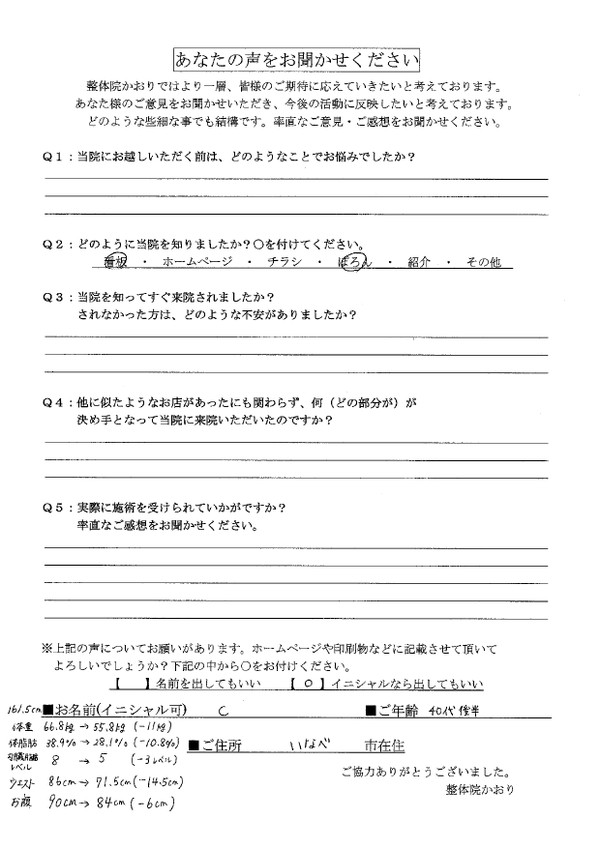 あなたの声をお聞かせください
整体院かおりではより一層、皆様のご期待に応えていきたいと考えております。
あなた様のご意見をお聞かせいただき、今後の活動に反映したいと考えております。
どのような些細な事でも結構です。率直なご意見・ご感想をお聞かせください。
Q1：当院にお越しいただく前は、どのようなことでお悩みでしたか？
Q2：どのように当院を知りましたか？○を付けてください。
看板 ・ ホームページ ・ チラシ ・ ぽろん ・ 紹介 ・ その他
Q3：当院を知ってすぐ来院されましたか？
されなかった方は、どのような不安がありましたか？
Q4：他に似たようなお店があったにも関わらず、何（どの部分が）が
決め手となって当院に来院いただいたのですか？
Q5：実際に施術を受けられていかがですか？
率直なご感想をお聞かせください。
※上記の声についてお願いがあります。ホームページや印刷物などに記載させて頂いて
よろしいでしょうか？下記の中から○をお付けください。
【　】名前を出してもいい 【○】イニシャルなら出してもいい
161.5cm ■お名前(イニシャル可) C ■ご年齢 40代後半
体重 66.8kg → 55.8kg (-11kg)
体脂肪 38.9% → 28.1% (-10.8%) ■ご住所 いなべ 市在住
内臓脂肪レベル 8 → 5 (-3レベル)
ウエスト 86cm → 71.5cm (-14.5cm)
お腹 90cm → 84cm (-6cm)
ご協力ありがとうございました。
整体院かおり